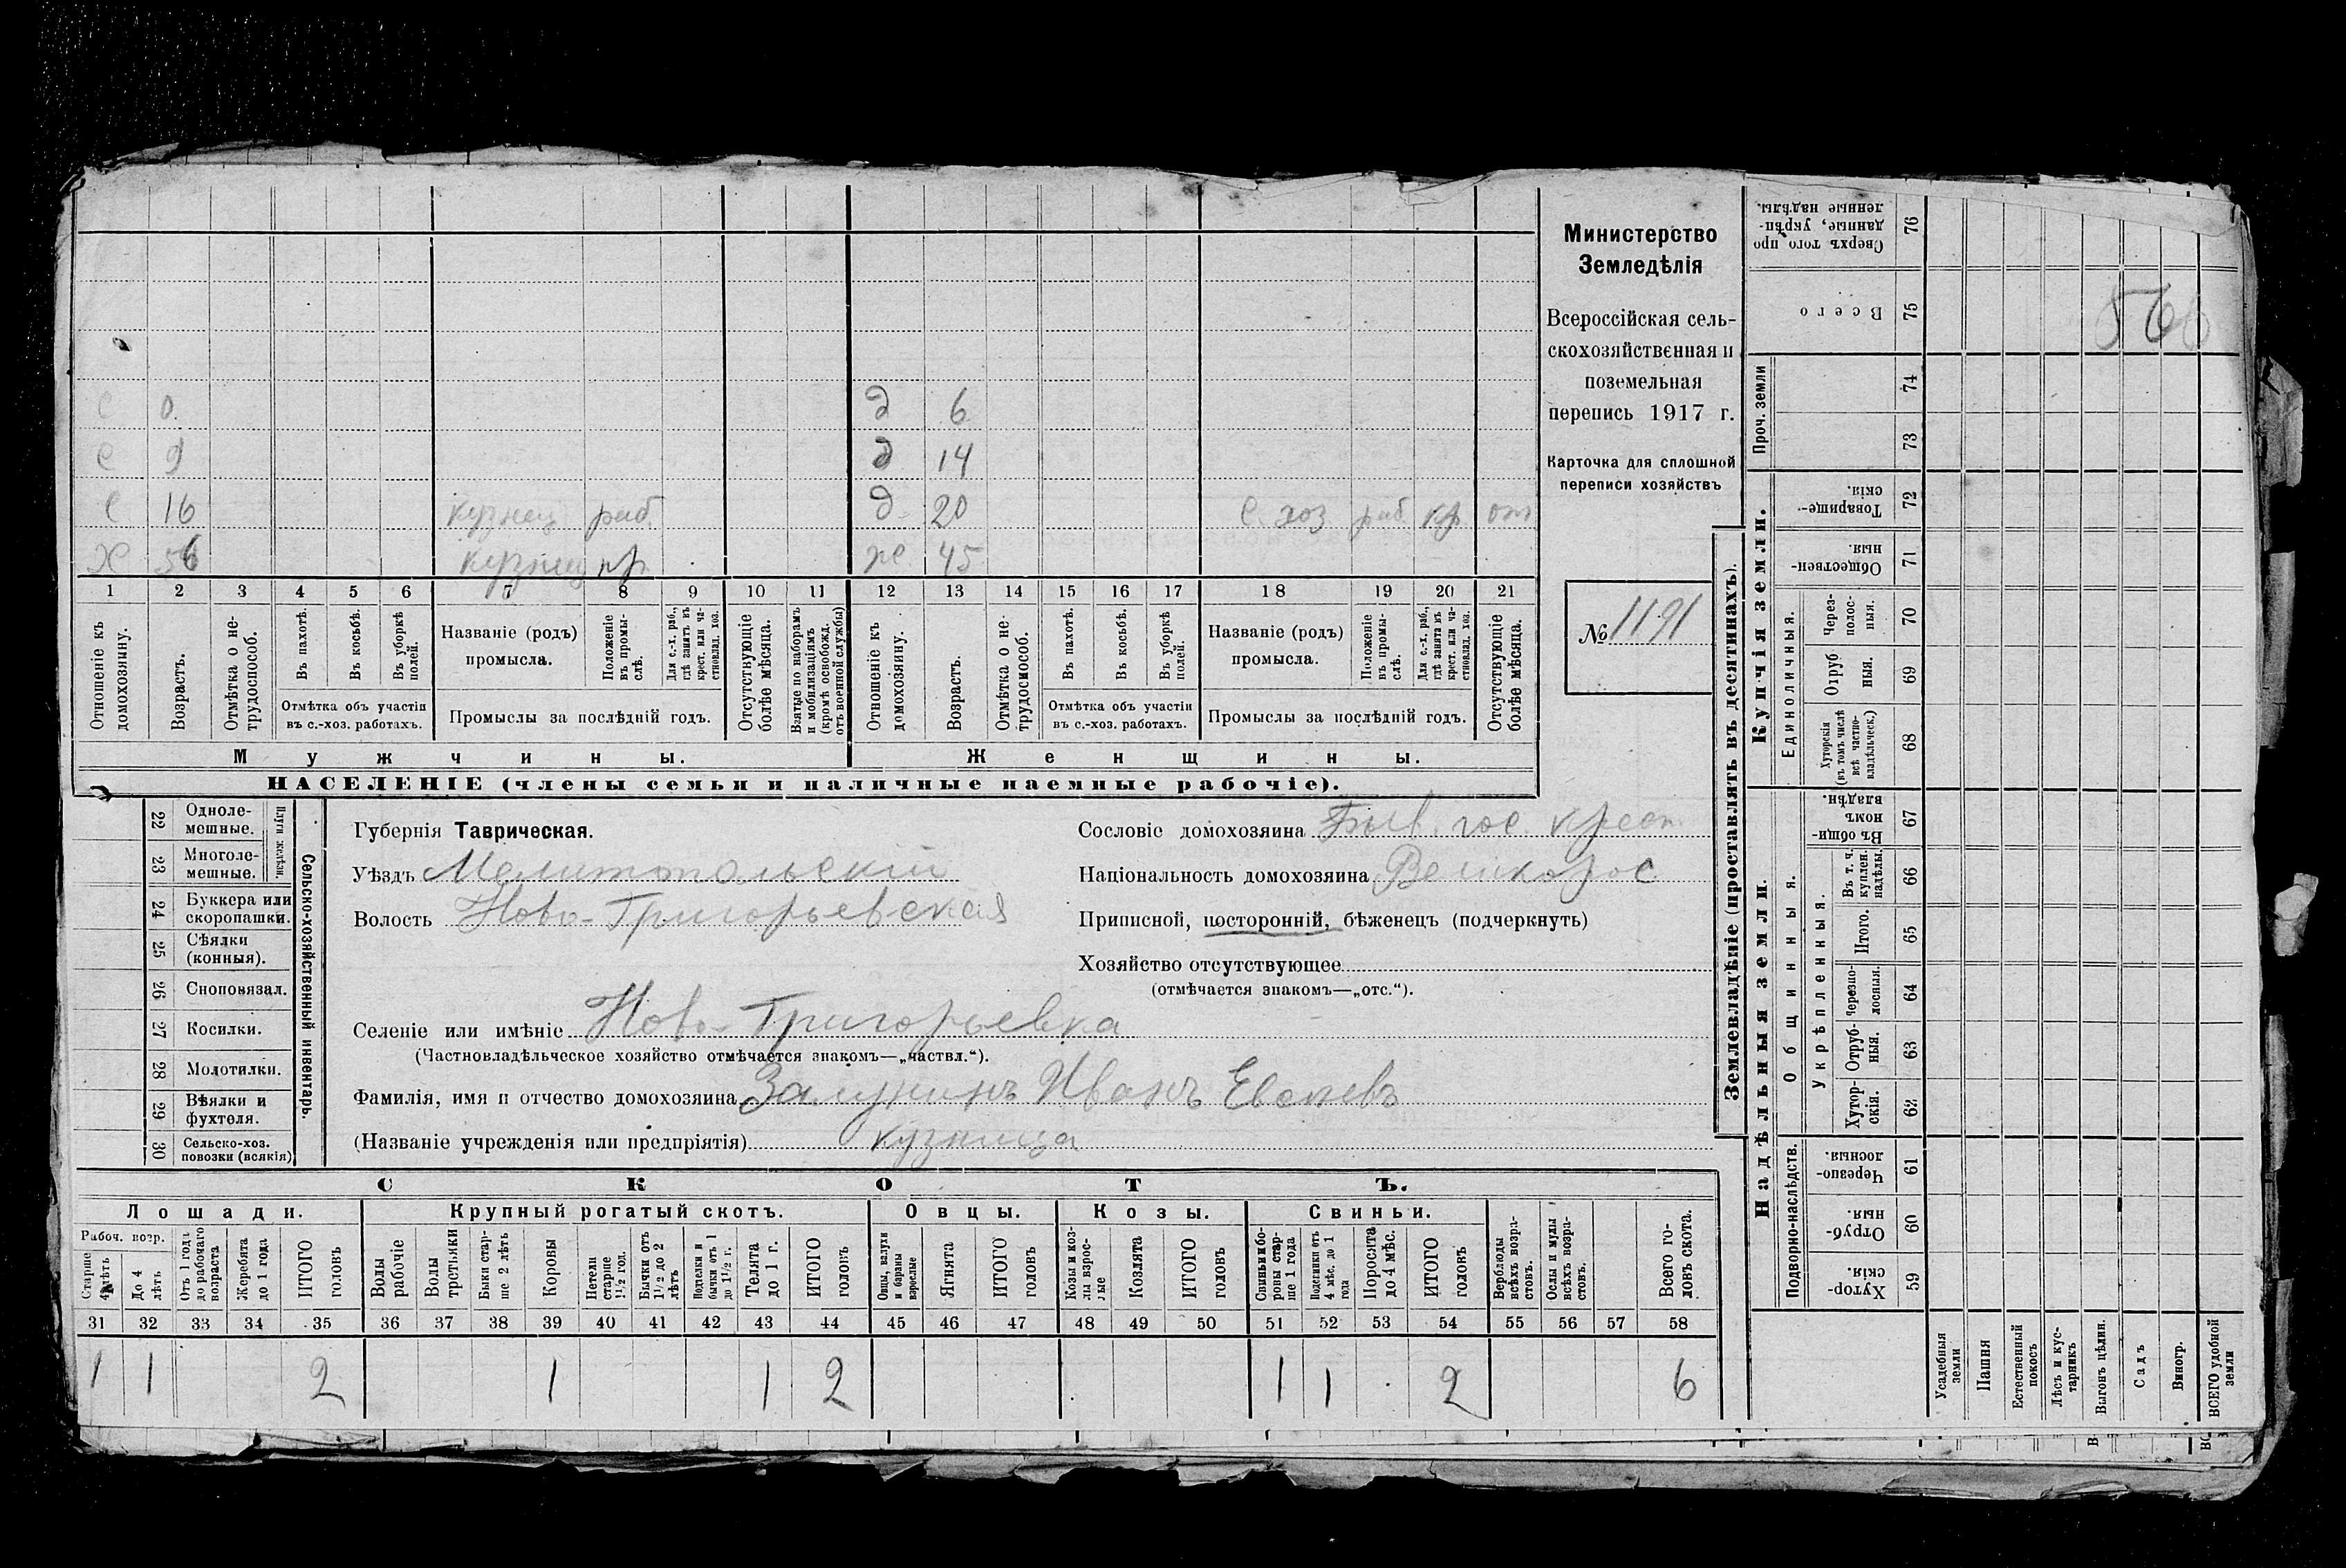 Министерство
Земледѣлія
Всероссійская сель-
скохозяйственная и
поземельная
перепись 1917 г.
Карточка для сплошной
переписи хозяйствъ
№ 1191
с 0 д 6
с 9 д 14
с 16 кузнец раб. д 20 с. хоз. раб. кр. отс
х 56 кузнец пр. ж 45
1 2 3 4 5 6 7 8 9 10 11 12 13 14 15 16 17 18 19 20 21
Отношеніе къ домохозяину.
Возрастъ.
Отмѣтка о не-трудоспособ.
Въ пахотѣ.
Въ косьбѣ.
Въ уборкѣ полей.
Отмѣтка объ участіи
въ с.-хоз. работахъ.
Названіе (родъ)
промысла.
Положеніе въ промы-слѣ.
Для с.-х. раб., гдѣ занятъ въ крест. или ча-стновлад. хоз.
Промыслы за послѣдній годъ.
Отсутствующіе болѣе мѣсяца.
Взятые по наборамъ и мобилизаціямъ (кромѣ освобожд. отъ военной службы)
Отношеніе къ домохозяину.
Возрастъ.
Отмѣтка о не-трудоспособ.
Въ пахотѣ.
Въ косьбѣ.
Въ уборкѣ полей.
Отмѣтка объ участіи
въ с.-хоз. работахъ.
Названіе (родъ)
промысла.
Положеніе въ промы-слѣ.
Для с.-х. раб., гдѣ занята въ крест. или ча-стновлад. хоз.
Промыслы за послѣдній годъ.
Отсутствующіе болѣе мѣсяца.
Мужчины. Женщины.
НАСЕЛЕНІЕ (члены семьи и наличные наемные рабочіе).
Сельско-хозяйственный инвентарь.
Плуги желѣзн.
22 Одноле-мешные.
23 Многоле-мешные.
24 Буккера или скоропашки.
25 Сѣялки (конныя).
26 Сноповязал.
27 Косилки.
28 Молотилки.
29 Вѣялки и фухтеля.
30 Сельско-хоз. повозки (всякія)
Губернія Таврическая.
Уѣздъ Мелитопольскій
Волость Ново-Григорьевская
Сословіе домохозяина Быв. гос. крест.
Національность домохозяина Великорос
Приписной, посторонній, бѣженецъ (подчеркнуть)
Хозяйство отсутствующее
(отмѣчается знакомъ—„отс.“).
Селеніе или имѣніе Ново-Григорьевка
(Частновладѣльческое хозяйство отмѣчается знакомъ—„частвл.“).
Фамилія, имя и отчество домохозяина Иванъ
(Названіе учрежденія или предпріятія) кузница
СКОТЪ.
Лошади. Крупный рогатый скотъ. Овцы. Козы. Свиньи.
Рабоч. возр.
Старше 4 лѣтъ
До 4 лѣтъ
Отъ 1 года до рабочаго возраста
Жеребята до 1 года
ИТОГО головъ
Волы рабочіе
Волы третьяки
Быки стар-ше 2 лѣтъ
Коровы
Нетели старше 1½ год.
Бычки отъ 1½ до 2 лѣтъ
Подтелки и бычки отъ 1 до 1½ г.
Телята до 1 г.
ИТОГО головъ
Овцы, валухи и бараны взрослые
Ягнята
ИТОГО головъ
Козы и коз-лы взрос-лые
Козлята
ИТОГО головъ
Свиньи и бо-ровы стар-ше 1 года
Подсвинки отъ 4 мѣс. до 1 года
Поросята до 4 мѣс.
ИТОГО головъ
Верблюды всѣхъ возра-стовъ.
Ослы и мулы всѣхъ возра-стовъ.
Всего го-ловъ скота.
31 32 33 34 35 36 37 38 39 40 41 42 43 44 45 46 47 48 49 50 51 52 53 54 55 56 57 58
1 1 2 1 1 2 1 1 2 6
Землевладѣніе (проставлять въ десятинахъ).
Купчія земли.
Надѣльныя земли.
Проч. земли
Единоличныя.
Общинныя.
Укрѣпленныя.
Подворно-наслѣдств.
Сверхъ того про данные, укрѣп-ленные надѣлы. 76
Всего 75
74
73
Товарище-скія. 72
Обществен-ныя 71
Через-полос-ныя. 70
Отруб ныя. 69
Хуторскія (въ томъ числѣ всѣ частно-владѣльческ.) 68
Въ общи номъ владѣн. 67
Въ т. ч. куплен. надѣлы. 66
Итого. 65
Черезпо-лосныя. 64
Отруб-ныя. 63
Хутор-скія. 62
Черезпо-лосныя. 61
Отруб-ныя. 60
Хутор-скія. 59
Усадебныя земли
Пашня
Естественный покосъ
Лѣсъ и кус-тарникъ
Выгонъ цѣлин.
Садъ
Виногр.
ВСЕГО удобной земли